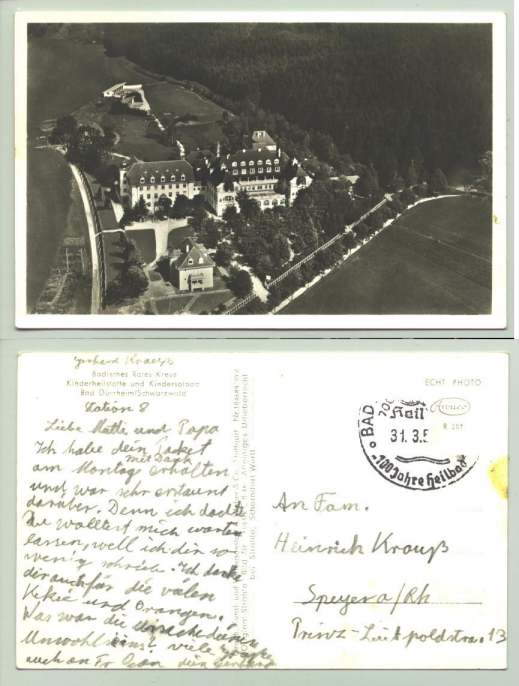 Gerhard Krauß
Badisches Rotes Kreuz
Kinderheilstätte und Kindersolbad
Bad Dürrheim/Schwarzwald
Station 8
Liebe Mutti und Papa
Ich habe dein Paket
mit Dank
am Montage erhalten
und war sehr erstaunt
darüber. Denn ich dachte
Du wolltest mich warten
lassen, weil ich dir so
wenig schrieb. Ich danke
dir auch für die vielen
Kekse und Orangen.
Was war die
Unwohl viele Grüße
auch an Fr. dein Gerhard
ECHT PHOTO
R 201
BAD
Hall
31.3.5
100 Jahre Heilbad
An Fam.
Heinrich Krauß
Speyer a/Rh
Prinz-Luitpoldstra. 13